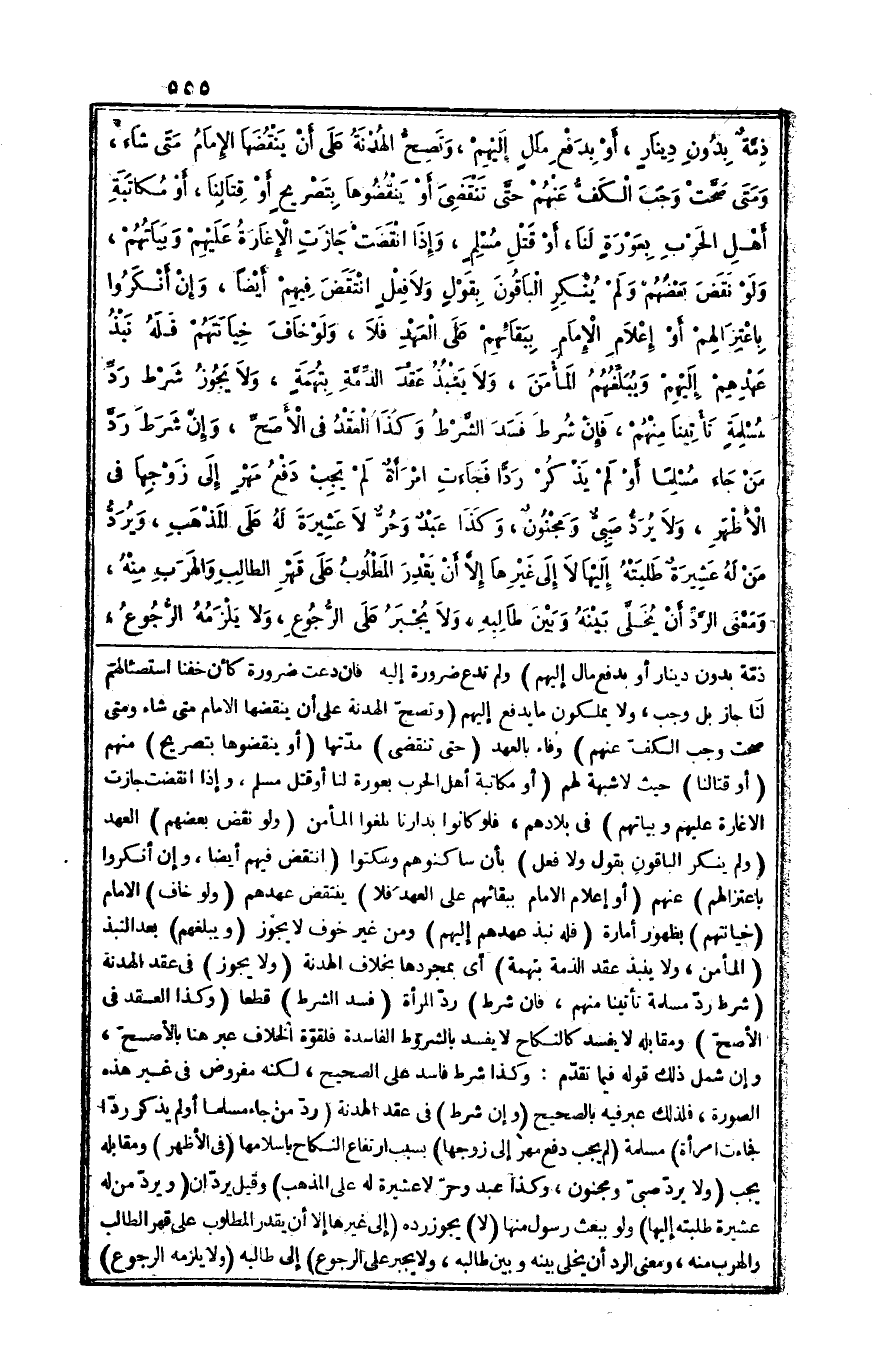 ٥٥٥
ذِمَّةٌ بِدُونِ دِينَارٍ ، أَوْ بِدَفْعِ مَالٍ إِلَيْهِمْ ، وَتَصِحُّ الهُدْنَةُ عَلَى أَنْ يَنْقُضَهَا الإِمَامُ مَتَى شَاءَ ،
وَمَتَى صَحَّتْ وَجَبَ الْكَفُّ عَنْهُمْ حَتَّى تَنْقَضِىَ أَوْ يَنْقُضُوهَا بِتَصْرِيحٍ أَوْ قِتَالِنَا ، أَوْ مُكَاتَبَةِ
أَهْلِ الحَرْبِ بِعَوْرَةٍ لَنَا ، أَوْ قَتْلِ مُسْلِمٍ ، وَإِذَا انْقَضَتْ جَازَتِ الْإِغَارَةُ عَلَيْهِمْ وَبَيَاتُهُمْ ،
وَلَوْ نَقَضَ بَعْضُهُمْ وَلَمْ يُنْكِرِ الْبَاقُونَ بِقَوْلٍ وَلَا فِعْلٍ انْتَقَضَ فِيهِمْ أَيْضًا ، وَإِنْ أَنْكَرُوا
بِاعْتِزَالِهِمْ أَوْ إِعْلَامِ الْإِمَامِ بِبَقَائِهِمْ عَلَى الْعَهْدِ فَلَا ، وَلَوْ خَافَ خِيَانَتَهُمْ فَلَهُ نَبْذُ
عَهْدِهِمْ إِلَيْهِمْ وَيُبَلِّغُهُمُ المَأْمَنَ ، وَلَا يَنْبُذُ عَقْدَ الذِّمَّةِ بِتُهَمَةٍ ، وَلَا يَجُوزُ شَرْطُ رَدِّ
مُسْلِمَةٍ تَأْتِينَا مِنْهُمْ ، فَإِنْ شُرِطَ فَسَدَ الشَّرْطُ وَكَذَا الْعَقْدُ فِى الْأَصَحِّ ، وَإِنْ شَرَطَ رَدَّ
مَنْ جَاءَ مُسْلِمًا أَوْ لَمْ يَذْكُرْ رَدًّا فَجَاءَتِ امْرَأَةٌ لَمْ يَجِبْ دَفْعُ مَهْرٍ إِلَى زَوْجِهَا فِى
الْأَظْهَرِ ، وَلَا يُرَدُّ صَبِىٌّ وَمَجْنُونٌ ، وَكَذَا عَبْدٌ وَحُرٌّ لَا عَشِيرَةَ لَهُ عَلَى المَذْهَبِ ، وَيُرَدُّ
مَنْ لَهُ عَشِيرَةٌ طَلَبَتْهُ إِلَيْهَا لَا إِلَى غَيْرِهَا إِلَّا أَنْ يَقْدِرَ المَطْلُوبُ عَلَى قَهْرِ الطالِبِ وَالهَرَبِ مِنْهُ ،
وَمَعْنَى الرَّدِّ أَنْ يُخَلَّى بَيْنَهُ وَبَيْنَ طَالِبِهِ ، وَلَا يُجْبَرُ عَلَى الرُّجُوعِ ، وَلَا يَلْزَمُهُ الرُّجُوعُ ،
ذمّة بدون دينار أو بدفع مال إليهم ) ولم تدع ضرورة إليه فان دعت ضرورة كأن خفنا استئصالهم
لنا جاز بل وجب ، ولا يملكون ما يدفع إليهم ( وتصحّ الهدنة على أن ينقضها الامام متى شاء ومتى
صحت وجب الكفّ عنهم ) وفاء بالعهد ( حتى تنقضى ) مدّتها ( أو ينقضوها بتصريح ) منهم
( أو قتالنا ) حيث لا شبهة لهم ( أو مكاتبة أهل الحرب بعورة لنا أو قتل مسلم ، وإذا انقضت جازت
الاغارة عليهم وبياتهم ) فى بلادهم ، فلو كانوا بدارنا بلغوا المأمن ( ولو نقض بعضهم ) العهد
( ولم ينكر الباقون بقول ولا فعل ) بأن ساكنوهم وسكتوا ( انتقض فيهم أيضا ، وإن أنكروا
باعتزالهم ) عنهم ( أو إعلام الامام ببقائهم على العهد فلا ) ينتقض عهدهم ( ولو خاف ) الامام
( خيانتهم ) بظهور أمارة ( فله نبذ عهدهم إليهم ) ومن غير خوف لا يجوز ( ويبلغهم ) بعد النبذ
( المأمن ، ولا ينبذ عقد الذمة بتهمة ) أى بمجردها بخلاف الهدنة ( ولا يجوز ) فى عقد الهدنة
( شرط ردّ مسلمة تأتينا منهم ، فان شرط ) ردّ المرأة ( فسد الشرط ) قطعا ( وكذا العقد فى
الأصحّ ) ومقابله لا يفسد كالنكاح لا يفسد بالشروط الفاسدة فلقوّة الخلاف عبر هنا بالأصحّ ،
وإن شمل ذلك قوله فيما تقدّم : وكذا شرط فاسد على الصحيح ، لكنه مفروض فى غير هذه
الصورة ، فلذلك عبر فيه بالصحيح ( وإن شرط ) فى عقد الهدنة ( ردّ من جاء مسلما أو لم يذكر ردّا
فجاءت امرأة ) مسلمة ( لم يجب دفع مهر إلى زوجها ) بسبب ارتفاع النكاح باسلامها ( فى الأظهر ) ومقابله
يجب ( ولا يردّ صبىّ ومجنون ، وكذا عبد وحرّ لا عشيرة له على المذهب ) وقيل يردّان ( ويردّ من له
عشيرة طلبته إليها ) ولو ببعث رسول منها ( لا ) يجوز رده ( إلى غيرها إلا أن يقدر المطلوب على قهر الطالب
والهرب منه ، ومعنى الرد أن يخلى بينه وبين طالبه ، ولا يجبر على الرجوع ) إلى طالبه ( ولا يلزمه الرجوع )